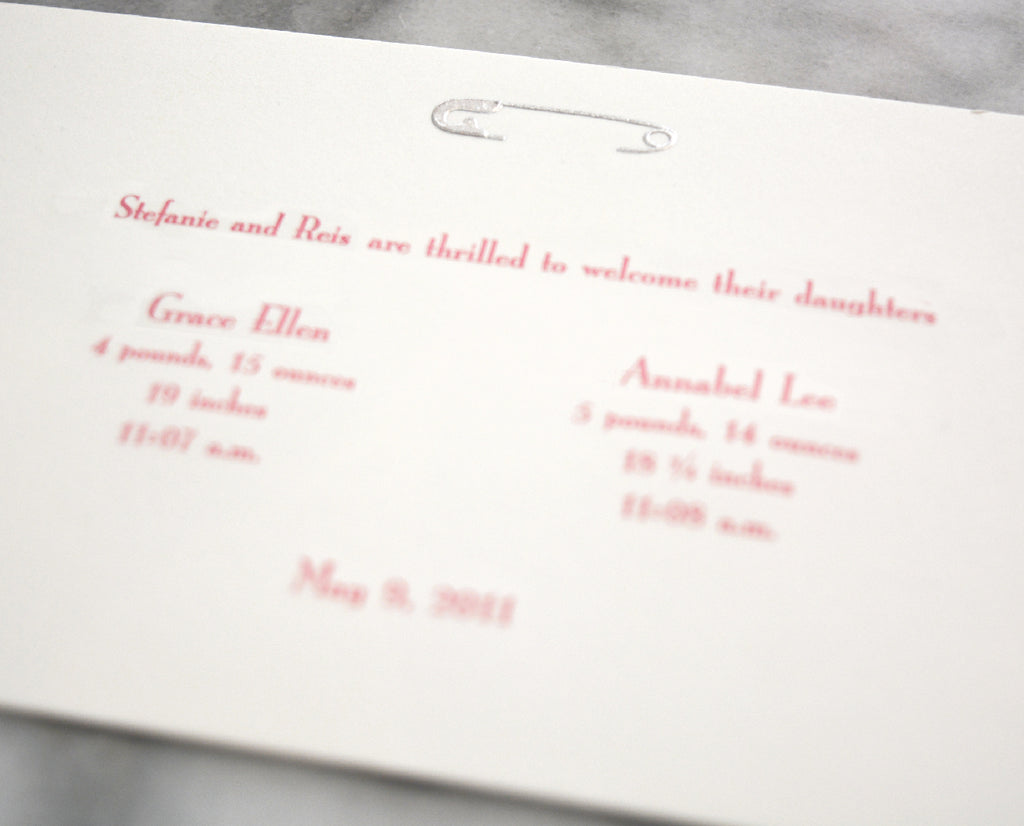 Stefanie and Reis are thrilled to welcome their daughters
Grace Ellen
4 pounds, 15 ounces
19 inches
11:07 a.m.
Annabel Lee
5 pounds, 14 ounces
18 inches
11:08 a.m.
May 2011